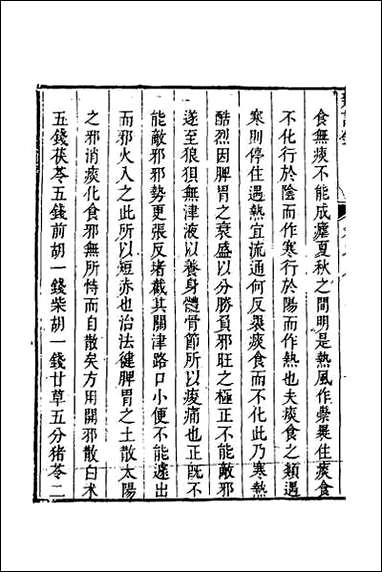 食無痰不能成瘧夏秋之間明是熱風作祟裹住痰食
不化行於陰而作寒行於陽而作熱也夫痰食之類遇
寒則停住遇熱宜流通何反裹痰食而不化此乃寒熱
酷烈因脾胃之衰盛以分勝負邪旺之極正不能敵邪
遂至狼狽無津液以養身體骨節所以痠痛也正既不
能敵邪邪勢更張反堵截其關津路口小便不能遽出
而邪火入之此所以短赤也治法健脾胃之土散太陽
之邪消痰化食邪無所恃而自散矣方用開邪散白术
五錢茯苓五錢前胡一錢柴胡一錢甘草五分猪苓二